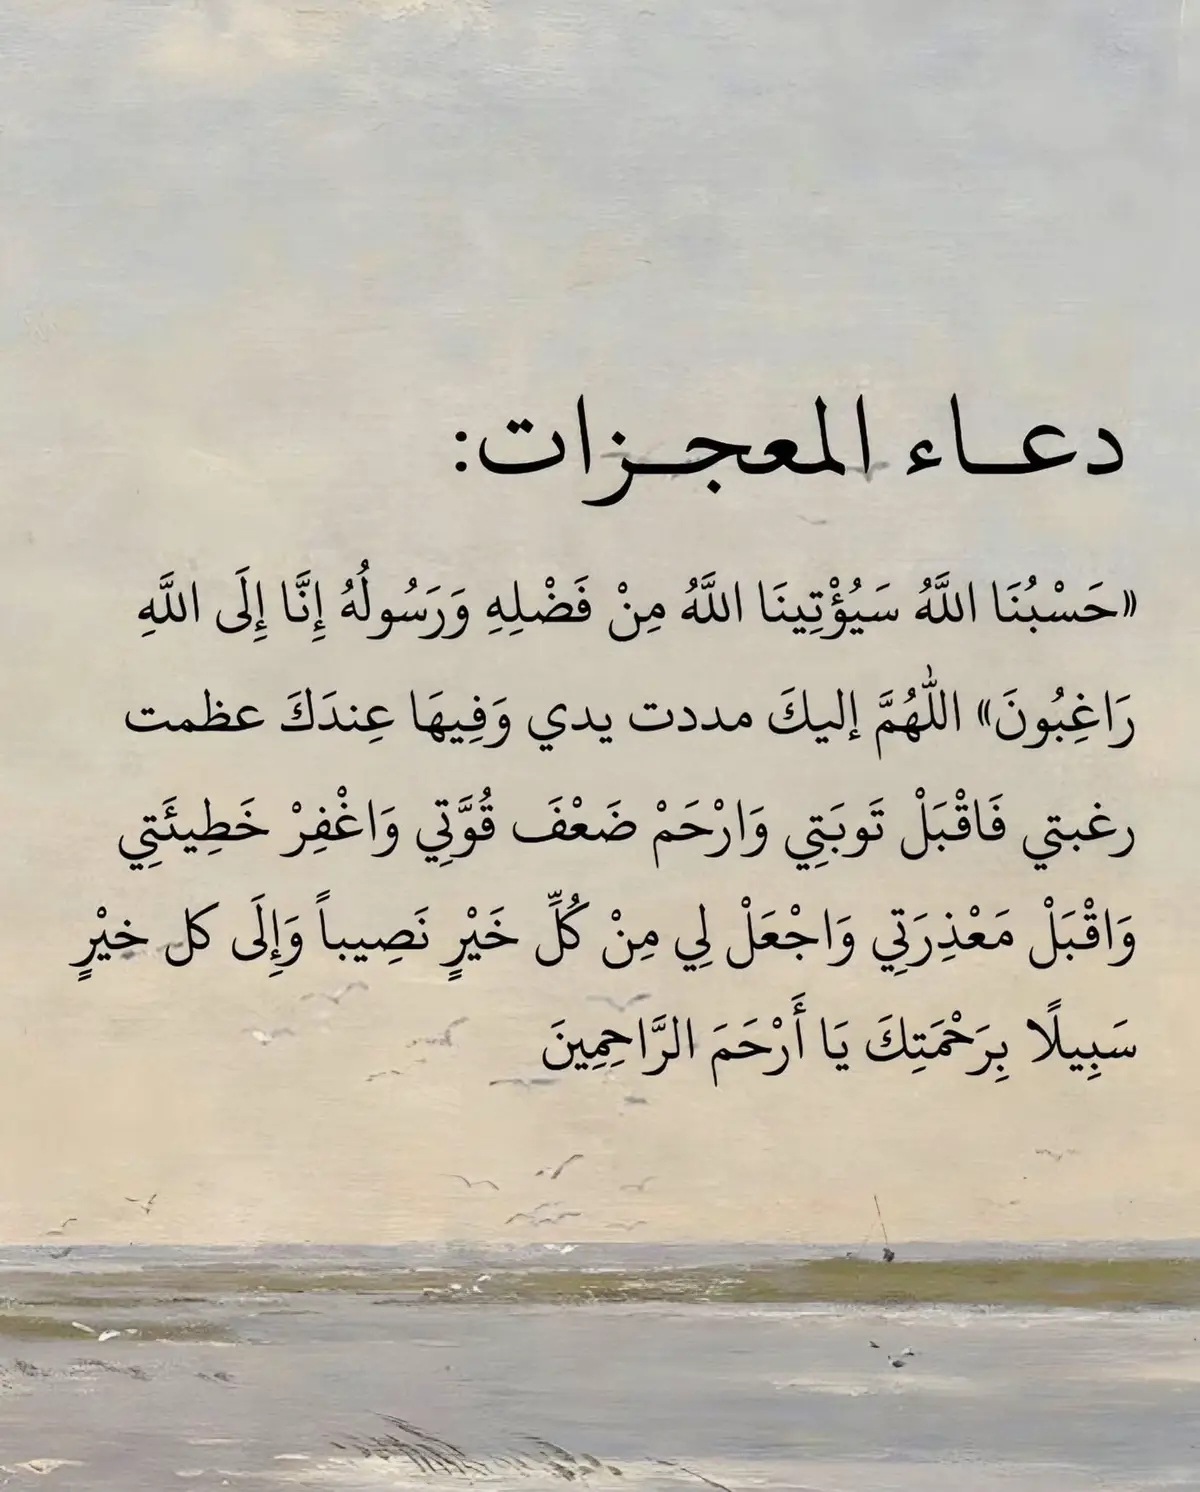 دعاء المعجزات:
«حَسْبُنَا اللَّهُ سَيُؤْتِينَا اللَّهُ مِنْ فَضْلِهِ وَرَسُولُهُ إِنَّا إِلَى اللَّهِ
رَاغِبُونَ» اللَّهُمَّ إليكَ مددت يدي وَفِيهَا عِندَكَ عظمت
رغبتي فَاقْبَلْ تَوبَتِي وَارْحَمْ ضَعْفَ قُوَّتِي وَاغْفِرْ خَطِيئَتِي
وَاقْبَلْ مَعْذِرَتِي وَاجْعَلْ لِي مِنْ كُلِّ خَيْرٍ نَصِيباً وَإِلَى كل خيْرٍ
سَبِيلًا بِرَحْمَتِكَ يَا أَرْحَمَ الرَّاحِمِينَ